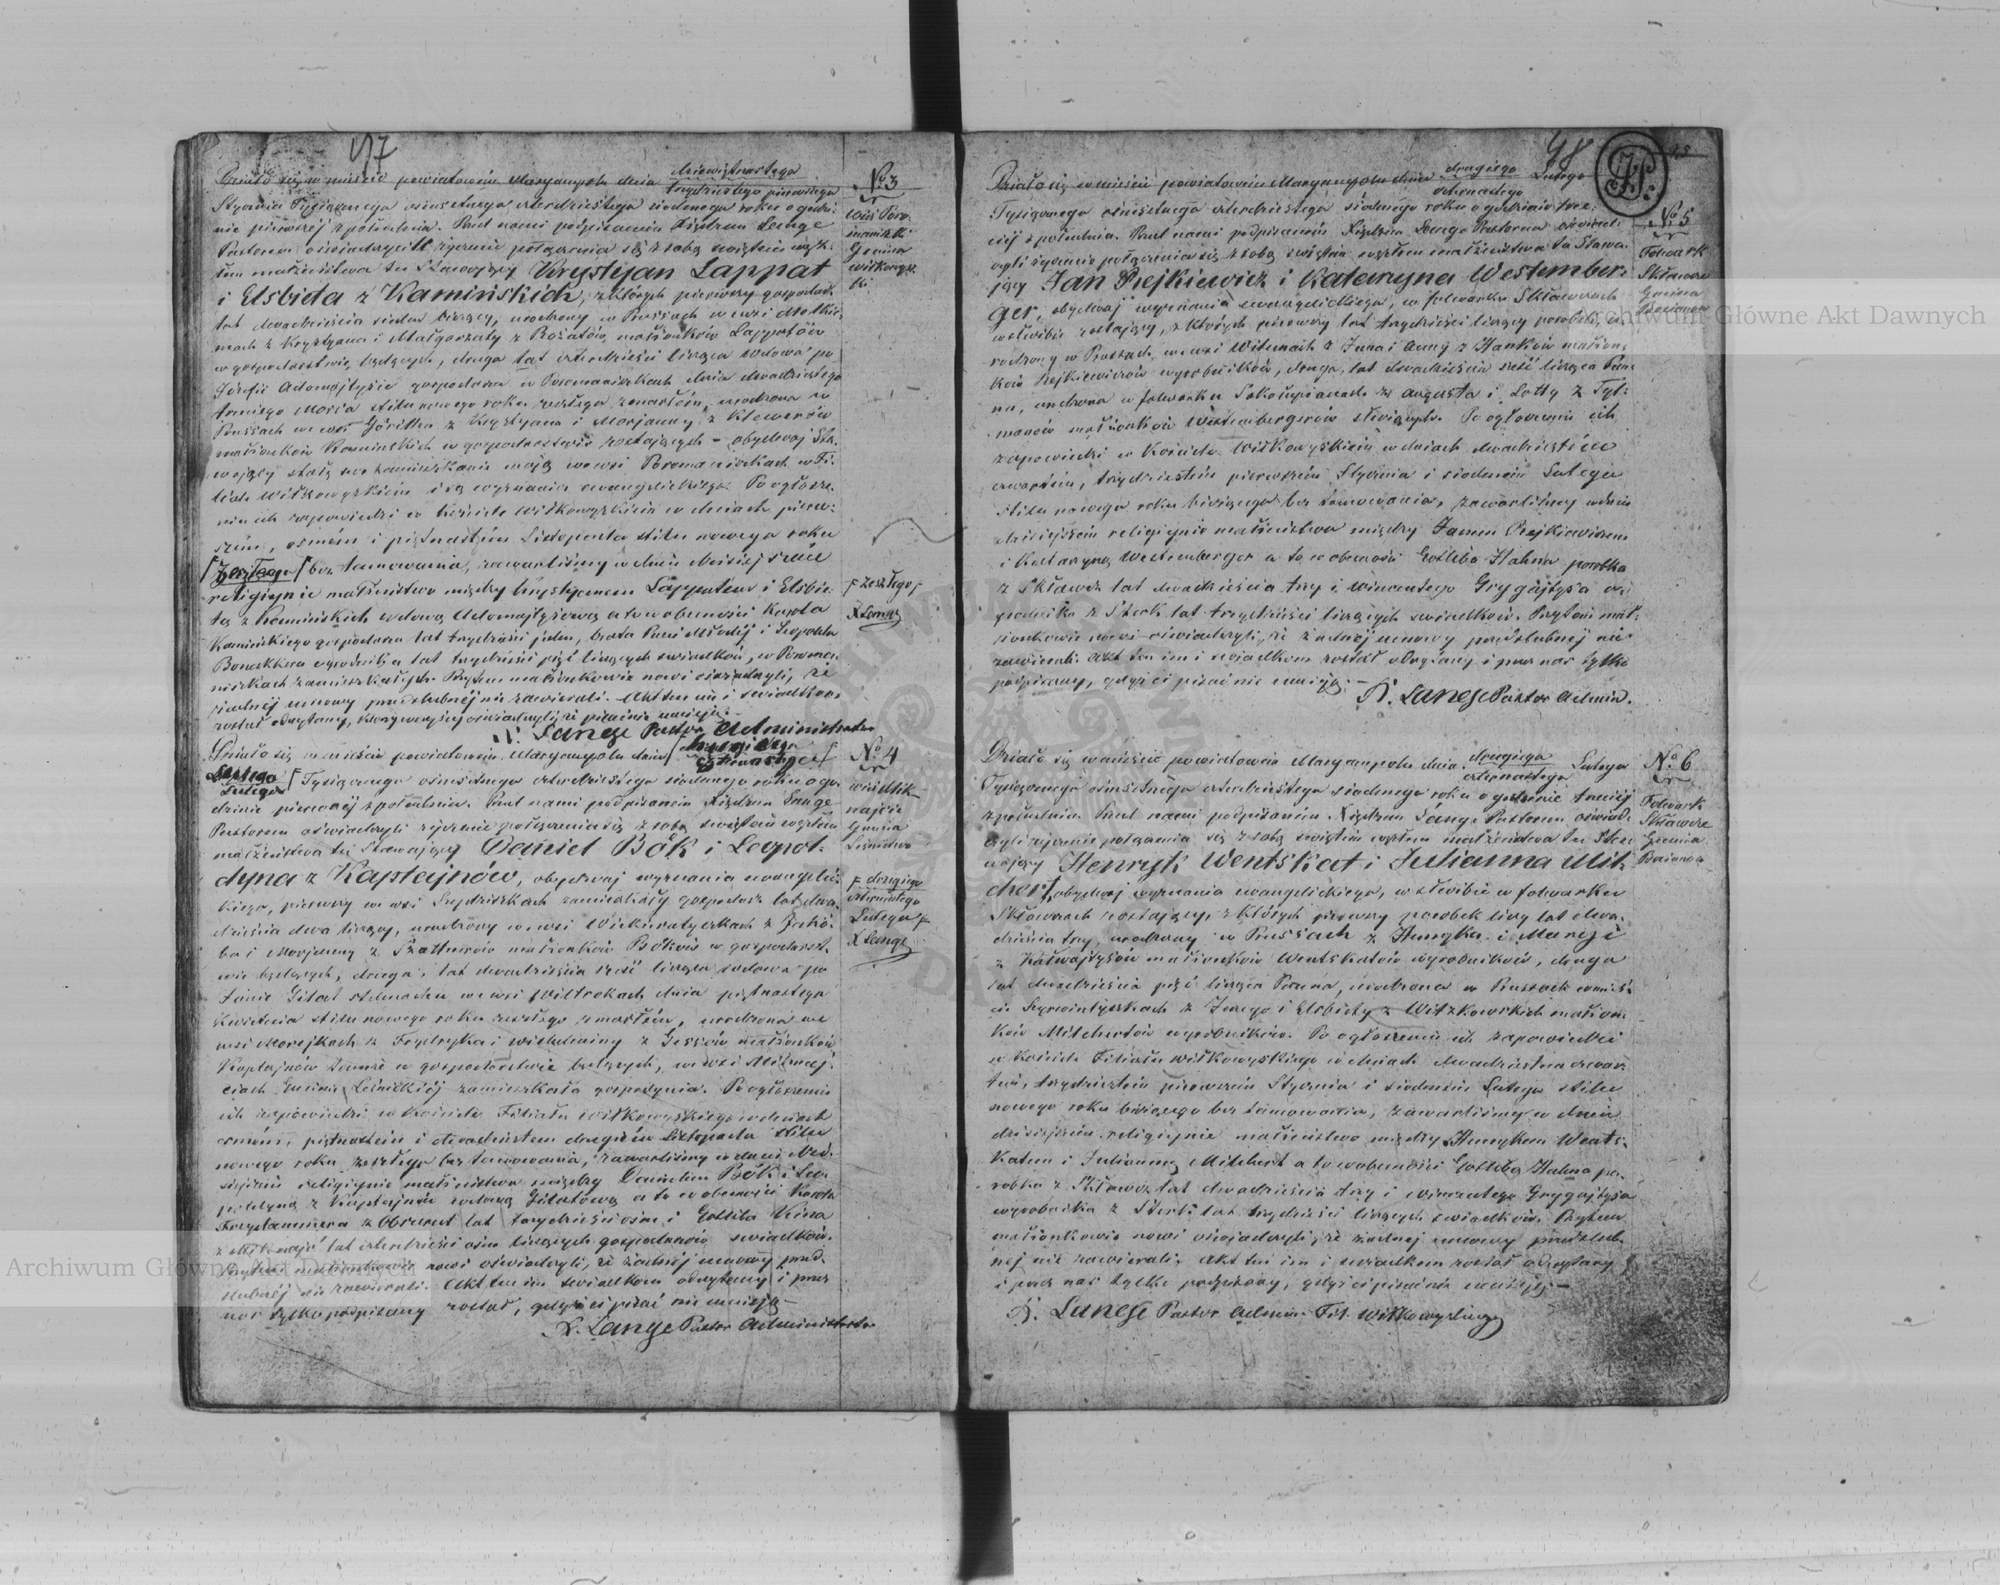 47
Działo się w mieście powiatowem Maryampolu dnia dziewiętnastego
trzydziestego pierwszego
Stycznia Tysiącznego ośmsetnego czterdziestego siódmego roku o godzi-
nie pierwszej z południa. Przed nami podpisanem Xiędzem Lange
Pastorem oświadczyli życzenie połączenia się z sobą świętem węz-
łem małżeństwa tu Stawający Krystyan Lappat
i Elsbieta z Kamińskich, z których pierwszy gospodarz
lat dwadzieścia siedm liczący, urodzony w Prussach w wsi
z Krystyana i Małgorzaty z małżonków Lappatów
w gospodarstwie będących, druga lat czterdzieści licząca wdowa po
Józefie Adomajtysie gospodarzu w Poromaniszkach dnia dwudziestego
trzeciego Marca stilu nowego roku zeszłego zmarłém, urodzona w
Prussach we wsi z Krystyana i Maryanny z Klewerów
małżonków Kamińskich w gospodarstwie zostających – obydwaj Sta-
wający stałe zamieszkanie mają we wsi Poromaniszkach w Fi-
liale Wiłkowyskiem i są wyznania ewangelickiego. Po ogłosze-
niu ich zapowiedzi w kościele Wiłkowyskiem w dniach pierw-
szém, ósmem i piętnastém Listopada stilu nowego roku
zeszłego bez tamowania, zawarliśmy w dniu dzisiejszém
religijnie małżeństwo między Krystyanem Lappatem i Elsbie-
tą z Kamińskich wdową Adomajtysową a to w obecności Karola
Kamińskiego gospodarza lat trzydzieści jeden, brata Panni Młodéj i Leopolda
lat trzydzieści pięć liczących świadków, w Poroma-
niszkach zamieszkałych. Przytem małżonkowie nowi oświadczyli, że
żadnéj umowy przedślubnéj nie zawierali. Akt ten im i świadkom
został odczytany, którzy oświadczyli, że pisać nie umieją.
X. Lange Pastor Administrator
№ 3
wieś Poro-
maniszki
Gmina
Wiłkowysz-
ki
zeszłego
X Lange
Działo się w mieście powiatowem Maryampolu dnia drugiego
czternastego
Lutego
Tysiącznego ośmsetnego czterdziestego siódmego roku o go-
dzinie pierwszej z południa. Przed nami podpisanem Xiędzem Lange
Pastorem oświadczyli życzenie połączenia się z sobą świętem węzłem
małżeństwa tu Stawający Daniel Bök i Leopol-
dyna z Kaptajnów, obydwaj wyznania ewangelic-
kiego, pierwszy we wsi zamieszkały gospodarz lat dwa-
dzieścia dwa liczący, urodzony we wsi z Jakó-
ba i Maryanny z małżonków Böków w gospodarst-
wie będących, druga, lat dwadzieścia sześć licząca wdowa po
Janie Gitat zdmarłém we wsi Wiltrokach dnia piętnastego
Kwietnia stilu nowego roku zeszłego zmarłém, urodzona we
wsi z Frydryka i Wilhelminy z małżonków
Kaptajnów w gospodarstwie będących, we wsi
zamieszkała gospodynia. Po ogłoszeniu
ich zapowiedzi w kościele Filiału Wiłkowyskiego w dniach
ósmém, piętnastém i dwudziestem drugiém Listopada stilu
nowego roku zeszłego bez tamowania, zawarliśmy w dniu dzi-
siejszém religijnie małżeństwo między Danielem Bök i Leo-
poldyną z Kaptajnów wdową Gitatową a to w obecności Karola
lat trzydzieści ośm i Gottliba
lat czterdzieści ośm liczących gospodarzów świadków.
Przytem małżonkowie nowi oświadczyli, że żadnéj umowy przed-
ślubnéj nie zawierali. Akt ten im świadkom odczytany i przez
nas tylko podpisany został, gdyż ci pisać nie umieją –
X. Lange Pastor Administrator
№ 4
Gmina
drugiego
czternastego
Lutego
X Lange
48
Działo się w mieście powiatowem Maryampolu dnia drugiego
czternastego Lutego
Tysiącznego ośmsetnego czterdziestego siódmego roku o godzinie trze-
ciéj z południa. Przed nami podpisanem Xiędzem Lange Pastorem oświad-
czyli życzenie połączenia się z sobą świętem węzłem małżeństwa tu Stawa-
jący Jan Rejkiewicz i Katarzyna Westember-
ger, obydwaj wyznania ewangelickiego, w folwarku Skławdzach
w służbie zostający, z których pierwszy lat trzydzieści liczący parobek, u-
rodzony w Prussach, we wsi Wittunach z Jana i Anny z Hanków małżon-
ków Rejkiewiczów wyrobników, druga, lat dwadzieścia sześć licząca Pan-
na, urodzona w folwarku z Augusta i Lotty z Tyl-
manów małżonków Westembergerów służących. Po ogłoszeniu ich
zapowiedzi w Kościele Wiłkowyskiem w dniach dwudziestém
czwartém, trzydziestém pierwszém Stycznia i siódmém Lutego
stilu nowego roku bieżącego bez tamowania, zawarliśmy w dniu
dzisiejszém religijnie małżeństwo między Janem Rejkiewiczem
i Katarzyną Westemberger a to w obecności Gottliba Hahna parobka
z Skławdz lat dwadzieścia trzy i Wincentego Grygajtysa
z Sterk lat trzydzieści liczących świadków. Przytem mał-
żonkowie nowi oświadczyli, że żadnéj umowy przedślubnéj nie
zawierali. Akt ten im i świadkom został odczytany i przez nas tylko
podpisany, gdyż ci pisać nie umieją. –
X. Lange Pastor Admin.
№ 5
Folwark
Skławdze
Gmina
Działo się w mieście powiatowem Maryampolu dnia drugiego
czternastego Lutego
Tysiącznego ośmsetnego czterdziestego siódmego roku o godzinie trzeciéj
z południa. Przed nami podpisanem Xiędzem Lange Pastorem oświad-
czyli życzenie połączenia się z sobą świętem węzłem małżeństwa tu Sta-
wający Henryk Wentskat i Julianna Mil-
chert, obydwaj wyznania ewangelickiego, w służbie w folwarku
Skławdzach zostający, z których pierwszy parobek liczy lat dwa-
dzieścia trzy, urodzony w Prussach z Henryka i Maryi
z małżonków Wentskatów wyrobników, druga
lat dwadzieścia pięć licząca Panna, urodzona w Prussach we wsi
z Jerzego i Elsbiety z Witzkowskich małżon-
ków Milchertów wyrobników. Po ogłoszeniu ich zapowiedzi
w kościele Filiału Wiłkowyskiego w dniach dwudziestem czwar-
tém, trzydziestém pierwszém Stycznia i siódmém Lutego stilu
nowego roku bieżącego bez tamowania, zawarliśmy w dniu
dzisiejszém religijnie małżeństwo między Henrykem Wents-
katem i Julianną Milchert a to w obecności Gottliba Hahna pa-
robka z Skławdz lat dwadzieścia trzy i Wincentego Grygajtysa
wyrobnika z Sterk lat trzydzieści liczących świadków. Przytem
małżonkowie nowi oświadczyli, że żadnej umowy przedślub-
néj nie zawierali. Akt ten im i świadkom został odczytany
i przez nas tylko podpisany, gdyż ci pisać nie umieją. –
X. Lange Pastor Admin. Fil. Wiłkowyskiego
№ 6
Folwark
Skławdze
Gmina
Archiwum Główne Akt Dawnych
Archiwum Główne Akt Dawnych